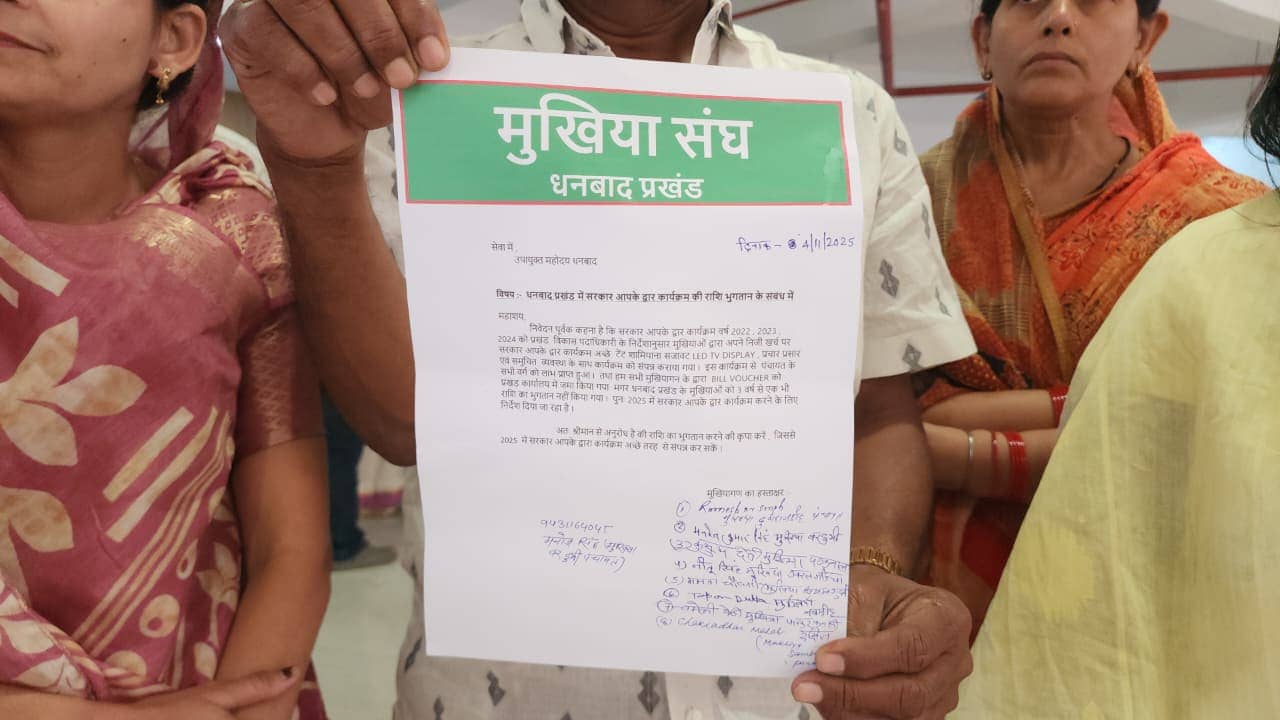 मुखिया संघ
धनबाद प्रखंड
सेवा में ,
दिनांक - 4/11/2025
उपायुक्त महोदय धनबाद
विषय :- धनबाद प्रखंड में सरकार आपके द्वार कार्यक्रम की राशि भुगतान के संबंध में
महाशय,
निवेदन पूर्वक कहना है कि सरकार आपके द्वार कार्यक्रम वर्ष 2022 , 2023 ,
2024 को प्रखंड विकास पदाधिकारी के निर्देशानुसार मुखियाओं द्वारा अपने निजी खर्च पर
सरकार आपके द्वार कार्यक्रम अच्छे टेंट शामियाना सजावट LED TV DISPLAY , प्रचार प्रसार
एवं समुचित व्यवस्था के साथ कार्यक्रम को संपन्न कराया गया । इस कार्यक्रम से पंचायत के
सभी वर्ग को लाभ प्राप्त हुआ । तथा हम सभी मुखियागन के द्वारा BILL VOUCHER को
प्रखंड कार्यालय में जमा किया गया मगर धनबाद प्रखंड के मुखियाओं को 3 वर्ष से एक भी
राशि का भुगतान नहीं किया गया । पुनः 2025 में सरकार आपके द्वार कार्यक्रम करने के लिए
निर्देश दिया जा रहा है ।
अतः श्रीमान से अनुरोध है की राशि का भुगतान करने की कृपा करें , जिससे
2025 में सरकार आपके द्वारा कार्यक्रम अच्छे तरह से संपन्न कर सकें ।
मुखियागण का हस्ताक्षर
① Ramesh Kr Singh
② मनोज कुमार सिंह मुखिया
देवी मुखिया
मुखिया
⑥ Tapan Dutta मुखिया
देवी मुखिया
Chakradhar
9431164045
मनोज सिंह (मुखिया
पंचायत)